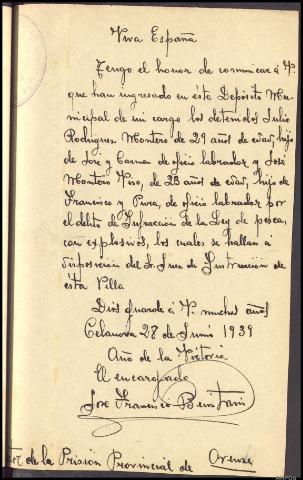 Viva España
Tengo el honor de comunicar á V.
que han ingresado en este Depósito Mu-
nicipal de mi cargo los detenidos Julio
Rodriguez Montero de 29 años de edad, hijo
de José y Carmen de oficio labrador y José
Montero de 23 años de edad, hijo de
Francisco y Pura, de oficio labrador por
el delito de Infracción de la Ley de pesca,
con explosivos, los cuales se hallan á
disposición del Sr. Juez de Instrucción de
esta Villa
Dios guarde á V. muchos años
Celanova 28 de Junio 1939
Año de la Victoria
El encargado
José Francisco
de la Prisión Provincial de Orense